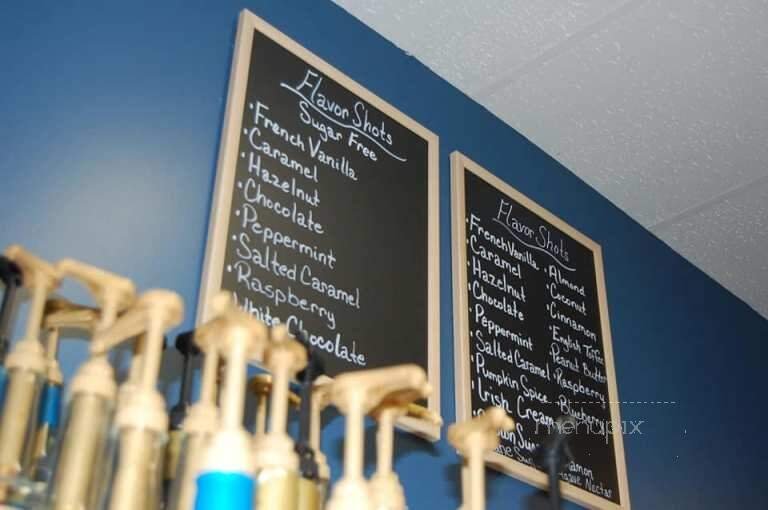 Flavor Shots
Sugar Free
·French Vanilla
·Caramel
·Hazelnut
·Chocolate
·Peppermint
·Salted Caramel
·Raspberry
White Chocolate
Flavor Shots
·French Vanilla
·Caramel
·Hazelnut
·Chocolate
·Peppermint
·Salted Caramel
·Pumpkin Spice
·Irish Cream
·Almond
·Coconut
·Cinnamon
·English Toffee
·Peanut Butter
·Raspberry
·Blueberry
Nectar
menupix